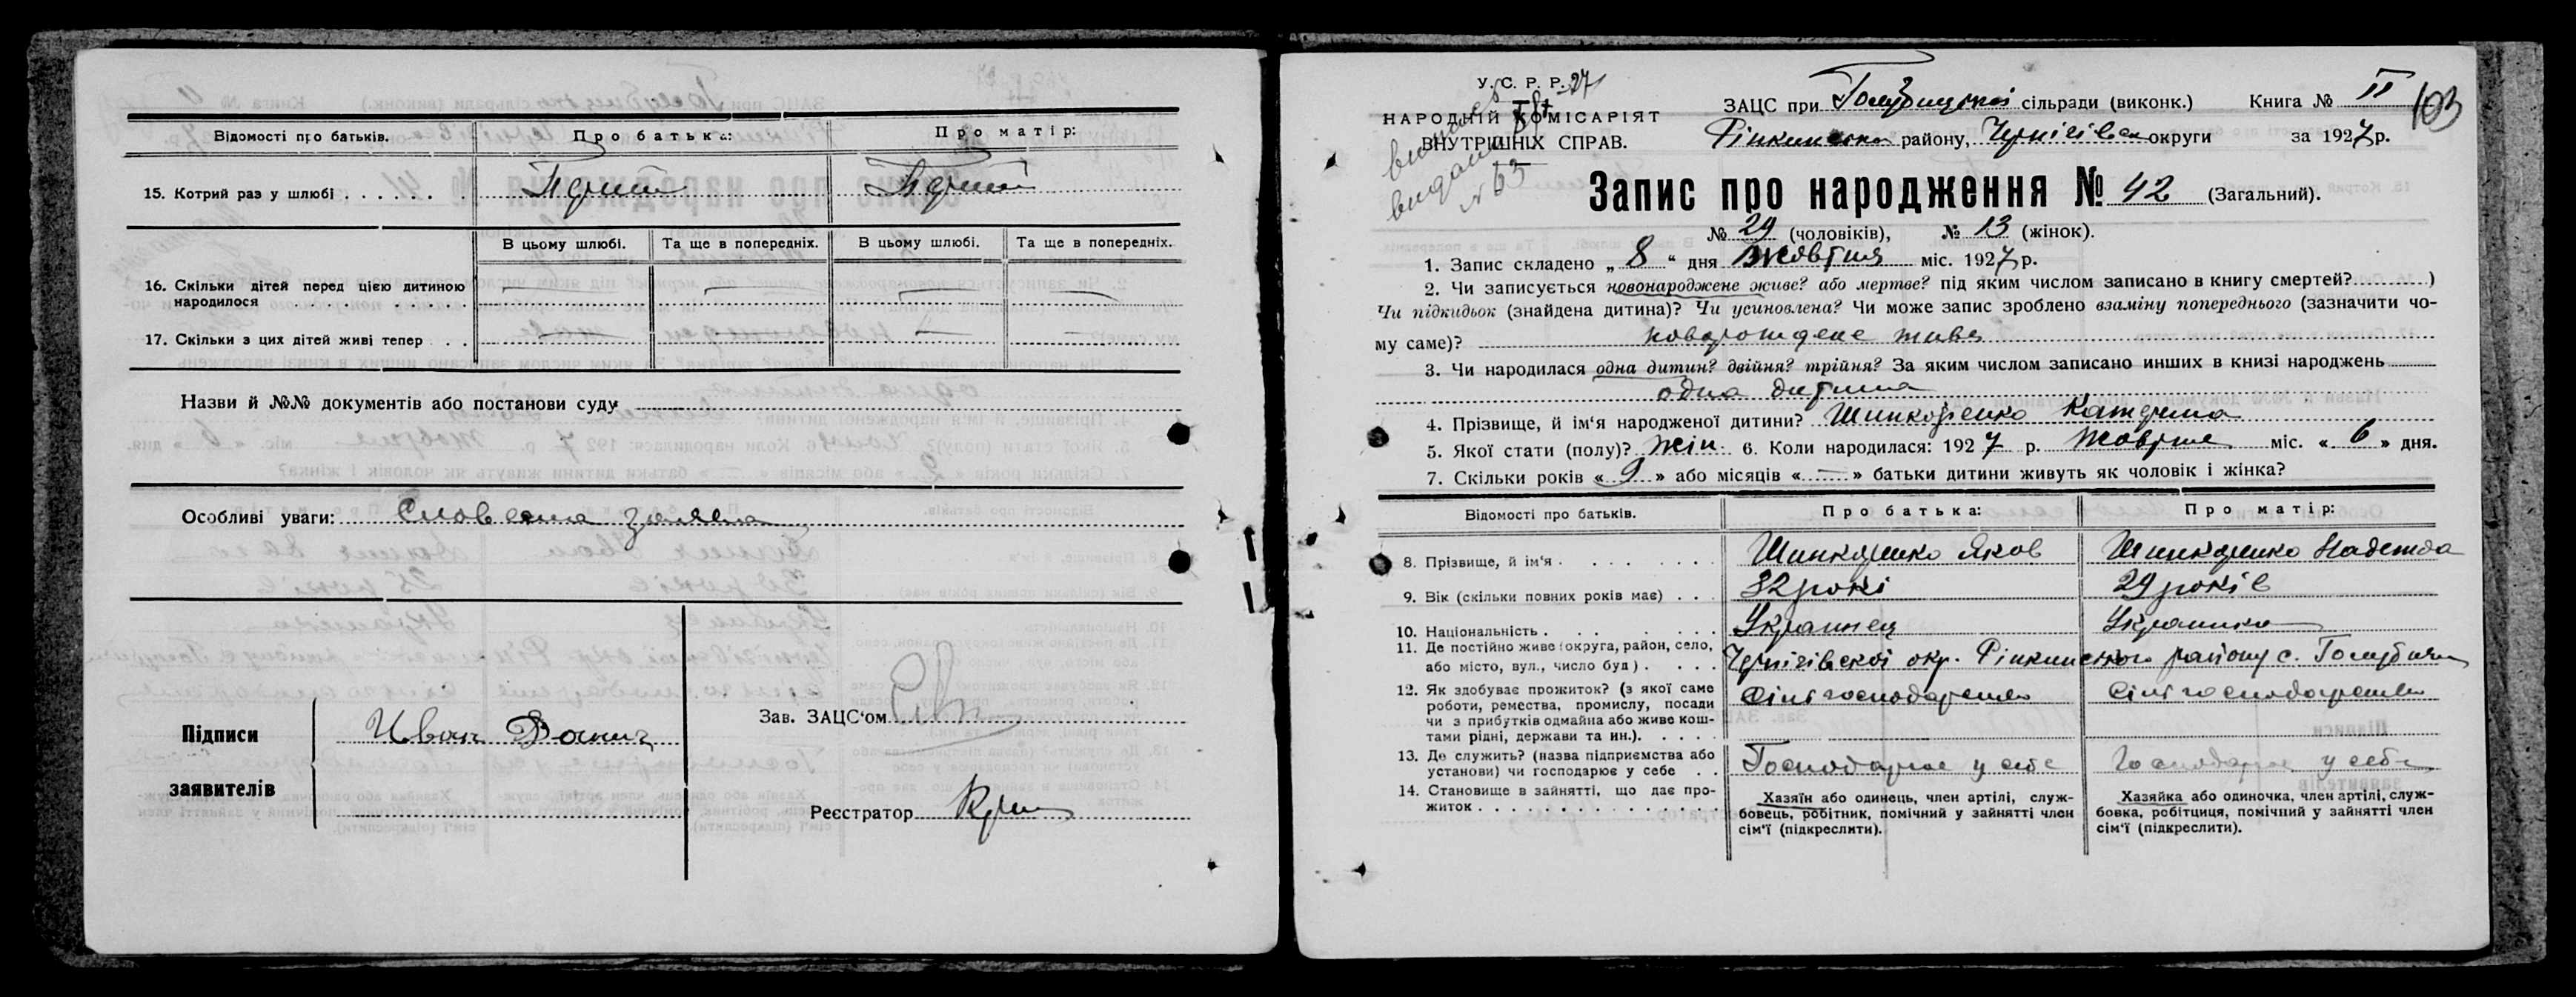 Відомості про батьків. Про батька: Про матір:
15. Котрий раз у шлюбі . . . . . . . Перший Перший
В цьому шлюбі. Та ще в попередніх. В цьому шлюбі. Та ще в попередніх.
16. Скільки дітей перед цією дитиною
народилося . . . . . . . . — — — —
17. Скільки з цих дітей живі тепер . . — — — —
Назви й №№ документів або постанови суду
Особливі уваги: Словесна заява
Підписи
заявителів
Иван
Зав. ЗАЦС'ом
Реєстратор
У. С. Р. Р.
НАРОДНІЙ КОМІСАРІЯТ
ВНУТРІШНІХ СПРАВ.
№ 63
ЗАЦС при Голубицької сільради (виконк.) Книга № II
103
Ріпкинсько району, Чернігівськ округи за 1927 р.
Запис про народження № 42 (Загальний).
№ 29 (чоловіків), № 13 (жінок).
1. Запис складено „ 8 “ дня Жовтня міс. 1927 р.
2. Чи записується новонароджене живе? або мертве? під яким числом записано в книгу смертей? )
Чи підкидьок (знайдена дитина)? Чи усиновлена? Чи може запис зроблено взаміну попереднього (зазначити чо-
му саме)? новорождене живе
3. Чи народилася одна дитин? двійня? трійня? За яким числом записано инших в книзі народжень
одна дитина
4. Прізвище, й ім'я народженої дитини? Шинкоренко Катерина
5. Якої стати (полу)? жін 6. Коли народилася: 1927 р. Жовтня міс. « 6 » дня.
7. Скільки років « 9 » або місяців « — » батьки дитини живуть як чоловік і жінка?
Відомості про батьків. Про батька: Про матір:
8. Прізвище, й ім'я . . . . . . . Шинкаренко Яков Шинкаренко Надежда
9. Вік (скільки повних років має) . . . 32 роки 29 років
10. Національність . . . . . . . Украинец Украинка
11. Де постійно живе (округа, район, село,
або місто, вул., число буд) . . . . . Чернігівської окр. Ріпкинського району с. Голубичи
12. Як здобуває прожиток? (з якої саме
роботи, ремества, промислу, посади
чи з прибутків одмайна або живе кош-
тами рідні, держави та ин.). . . . .
Сільгосподарство Сільгосподарство
13. Де служить? (назва підприємства або
установи) чи господарює у себе . .
Господарює у себе Господарює у себе
14. Становище в зайнятті, що дає про-
житок . . . . . . . . . . . . . .
Хазяїн або одинець, член артілі, служ-
бовець, робітник, помічний у зайнятті член
сім'ї (підкреслити).
Хазяйка або одиночка, член артілі, служ-
бовка, робітциця, помічний у зайнятті член
сім'ї (підкреслити).